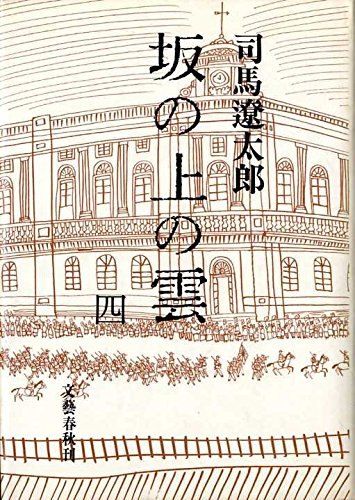 司馬遼太郎
坂の上の雲
四
文藝春秋刊